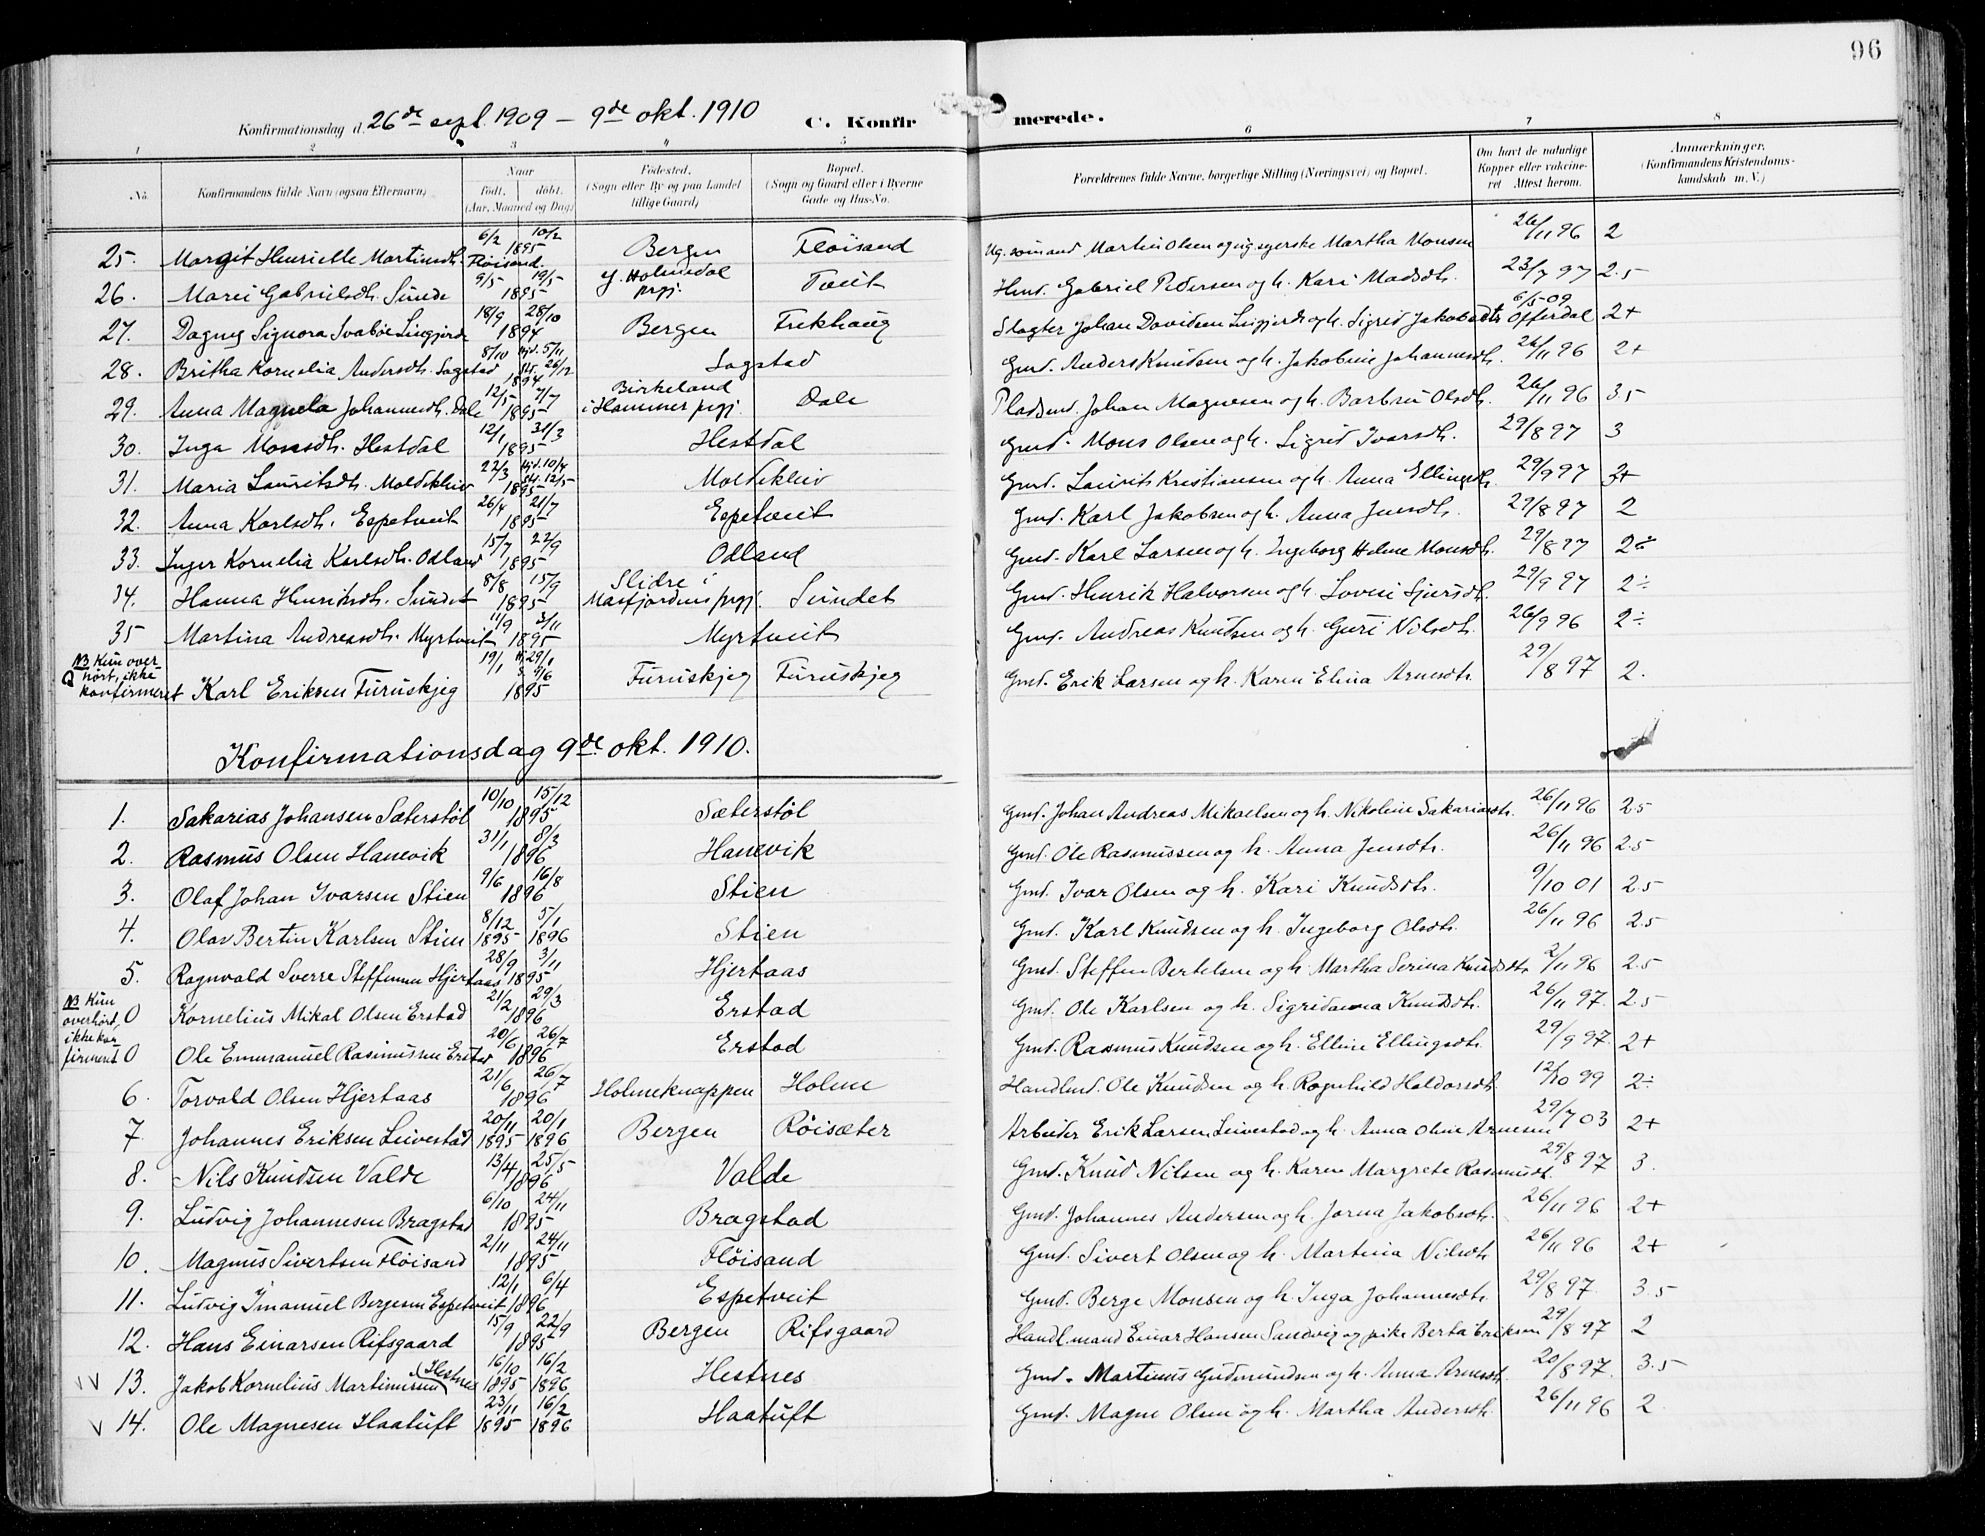 96
Konfirmationsdag d. 26de sept. 1909 – 9de okt. 1910 C. Konfirmerede.
1 2 3 4 5 6 7 8
No. Konfirmandens fulde Navn (ogsaa Efternavn) Naar Født, døbt. (Aar, Maaned og Dag) Fødested. (Sogn eller By og paa Landet tillige Gaard) Bopæl. (Sogn og Gaard eller i Byerne Gade og Hus-No. Forældrenes fulde Navne, borgerlige Stilling (Næringsvei) og Bopæl. Om havt de naturlige Kopper eller vakcineret Attest herom. Anmærkninger. (Konfirmandens Kristendomskundskab m. V.)
25. Margit Henrielle Martinsdtr. Fløisand. 6/2 10/2 1895 Bergen Fløisand Ug. sömand Martin Olsen og ug. syerske Martha Monsen 26/11 96 2
26. Marei Gabrielsdtr. Sunde 9/5 19/5 1895 Y. Holmedal prgj. Tveit Hmd. Gabriel Pedersen og h. Kari Madsdtr. 23/7 97 2.5
27. Dagny Signora Svabøe Lingjerde 18/9 28/10 1894 Bergen Frekhaug Slagter Johan Davidsen Lingjerde og h. Sigrid Jakobsdtr Offerdal 6/5-09 2+
28. Britha Kornelia Andersdtr. Sagstad 8/10 hjd. 5/11 st. 26/12 1894 Sagstad Gmd. Anders Knudsen og h. Jakobine Johannesdtr. 26/11 96 2+
29. Anna Magnela Johannesdtr. Dale 12/5 7/7 1895 Birkeland i Hammer prgj. Dale Pladsmd. Johan Magnesen og h. Barbru Olsdtr. 26/11 96 3.5
30. Inga Monsdtr. Hestdal 12/1 31/3 1895 Hestdal Gmd. Mons Olsen og h. Sigrid Ivarsdtr. 29/8 97 3
31. Maria Lauritsdtr. Moldekleiv 22/3 hjd. 10/4 st. 12/5 1895 Moldekleiv Gmd. Laurits Kristiansen og h. Anna Ellingsdtr. 29/9 97 3+
32. Anna Karlsdtr. Espetveit 26/4 21/7 1895 Espetveit Gmd. Karl Jakobsen og h. Anna Jensdtr. 29/8 97 2
33. Inger Kornelia Karlsdtr. Odland 15/7 22/9 1895 Odland Gmd. Karl Larsen og h. Ingeborg Helene Monsdtr. 29/8 97 2÷
34. Hanna Henriksdtr. Sundet 8/8 15/9 1895 Slidre i Masfjordens prgj. Sundet Gmd. Henrik Halvorsen og h. Lovise Sjursdtr. 29/9 97 2÷
35 Martina Andreasdtr. Myrtveit 11/9 3/11 1895 Myrtveit Gmd. Andreas Knudsen og h. Guri Nilsdtr. 26/9 96 2÷
NB Kun overhört, ikke konfirmeret Karl Eriksen Furuskjeg 19/1 H. 29/1 S. 4/6 1895 Furuskjeg Furuskjeg Gmd. Erik Larsen og h. Karen Elina Arnesdtr. 29/8 97 2.
Konfirmationsdag 9de okt. 1910.
1. Sakarias Johansen Sæterstøl 10/10 15/12 1895 Sæterstøl Gmd. Johan Andreas Mikaelsen og h. Nikoline Sakariasdtr. 26/11 96 2.5
2. Rasmus Olsen Hanevik 31/1 8/3 1896 Hanevik Gmd. Ole Rasmussen og h. Anna Jensdtr. 26/11 96 2.5
3. Olaf Johan Ivarsen Stien 9/6 16/8 1896 Stien Gmd. Ivar Olsen og h. Kari Knudsdtr. 9/10 01 2.5
4. Olav Bertin Karlsen Stien 8/12 1895 5/1 1896 Stien Gmd. Karl Knudsen og h. Ingeborg Olsdtr. 26/11 96 2.5
5. Ragnvald Sverre Steffensen Hjertaas 28/9 3/11 1895 Hjertaas Gmd. Steffen Bertelsen og h. Martha Serina Knudsdtr. 2/11 96 2.5
NB Kun overhört, ikke konfirmert 0 Kornelius Mikal Olsen Erstad 21/2 29/3 1896 Erstad Gmd. Ole Karlsen og h. Sigridanna Knudsdtr. 26/11 97. 2.5
0 Ole Emmanuel Rasmussen Erstad 20/6 26/7 1896 Erstad Gmd. Rasmus Knudsen og h. Elline Ellingsdtr. 29/9 97. 2+
6. Torvald Olsen Hjertaas 21/6 26/7 1896 Holmeknappen Holme Handlmd. Ole Knudsen og h. Ragnhild Haldorsdtr. 12/10 99 2÷
7. Johannes Eriksen Leivestad 20/11 1895 20/1 1896 Bergen Røisæter Arbeider Erik Larsen Leivestad og h. Anna Oline Arnesen 29/7 03 2+
8. Nils Knudsen Valde 13/4 25/5 1896 Valde Gmd. Knud Nilsen og h. Karen Margrete Rasmusdtr. 29/8 97 3.
9. Ludvig Johannesen Bragstad 6/10 24/11 1895 Bragstad Gmd. Johannes Andersen og h. Jorna Jakobsdtr. 26/11 96 2+
10. Magnus Sivertsen Fløisand 2/11 24/11 1895 Fløisand Gmd. Sivert Olsen og h. Martina Nilsdtr. 26/11 96 2+
11. Ludvig Imanuel Bergesen Espetveit 12/1 6/4 1896 Espetveit Gmd. Berge Monsen og h. Inga Johannesdtr. 29/8 97. 3.5
12. Hans Einarsen Rifsgaard 15/9 22/9 1895 Bergen Rifsgaard Handl.mand Einar Hansen Sandvig og pike Berta Eriksen 29/8 97 2
13. Jakob Kornelius Martinussen Hestnes 16/10 1895 16/2 1896 Hestnes Gmd. Martinus Gudmundsen og h. Anna Arnesdtr. 20/8 97. 3.5
14. Ole Magnesen Haatuft 23/11 1895 16/2 1896 Haatuft Gmd. Magne Olsen og h. Martha Andersdtr. 26/11 96 2.